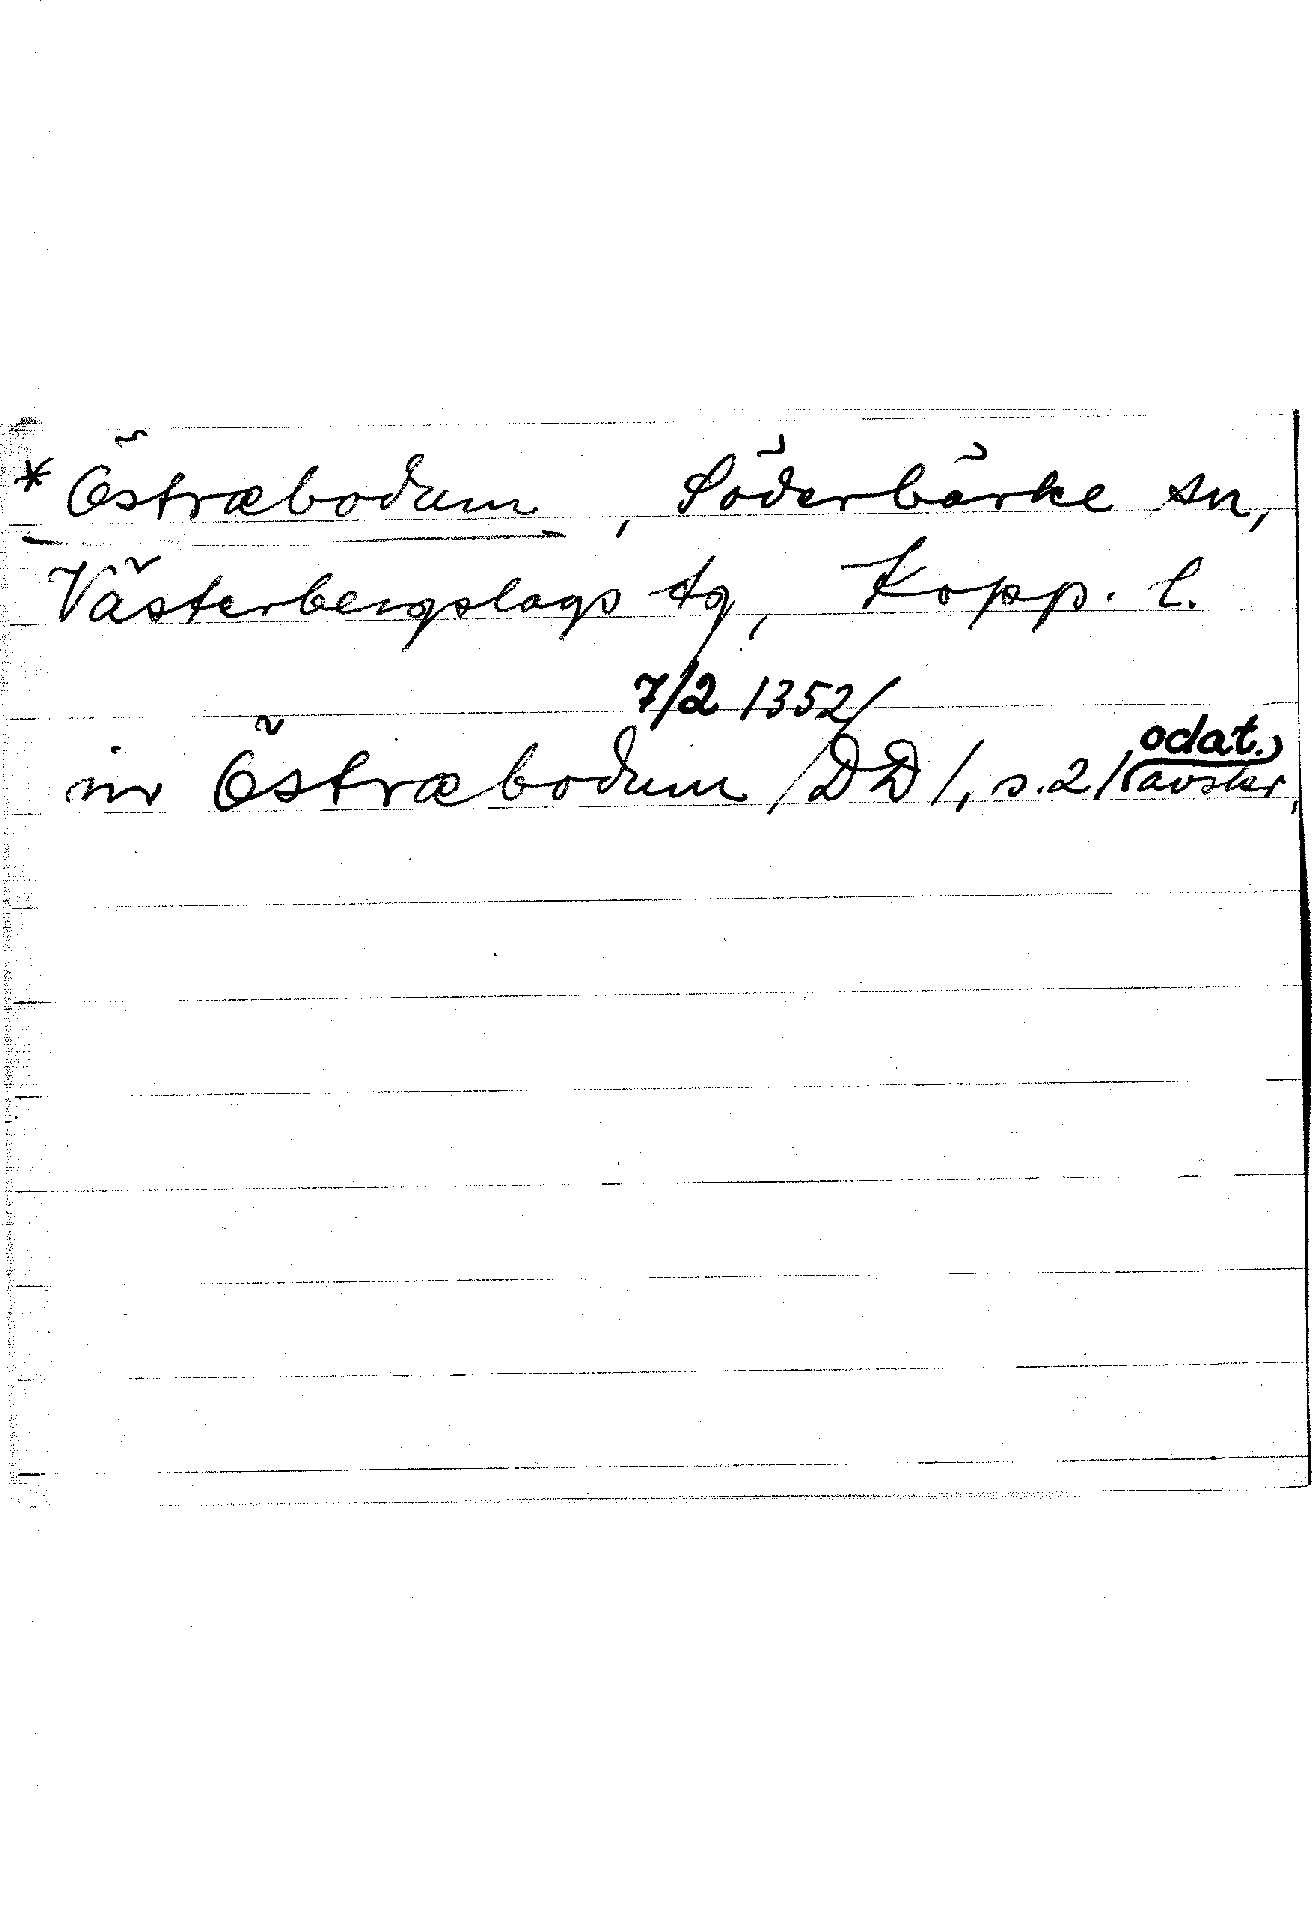 * Östræbodum, Söderbärke sn,
Västerbergslags tg, Kopp. l.
7/2 1352/
in Östræbodum /DD/, s. 2/(odat. avskr.)